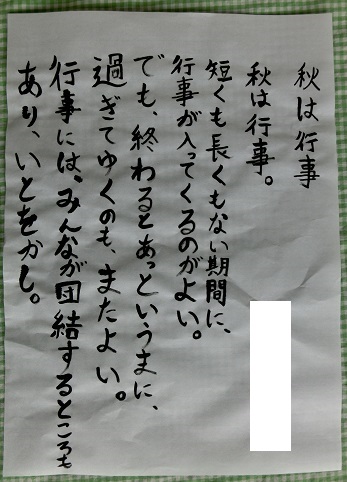 秋は行事
秋は行事。
短くも長くもない期間に、
行事が入ってくるのがよい。
でも、終わるとあっというまに、
過ぎてゆくのも、またよい。
行事には、みんなが団結するところも
あり、いとをかし。